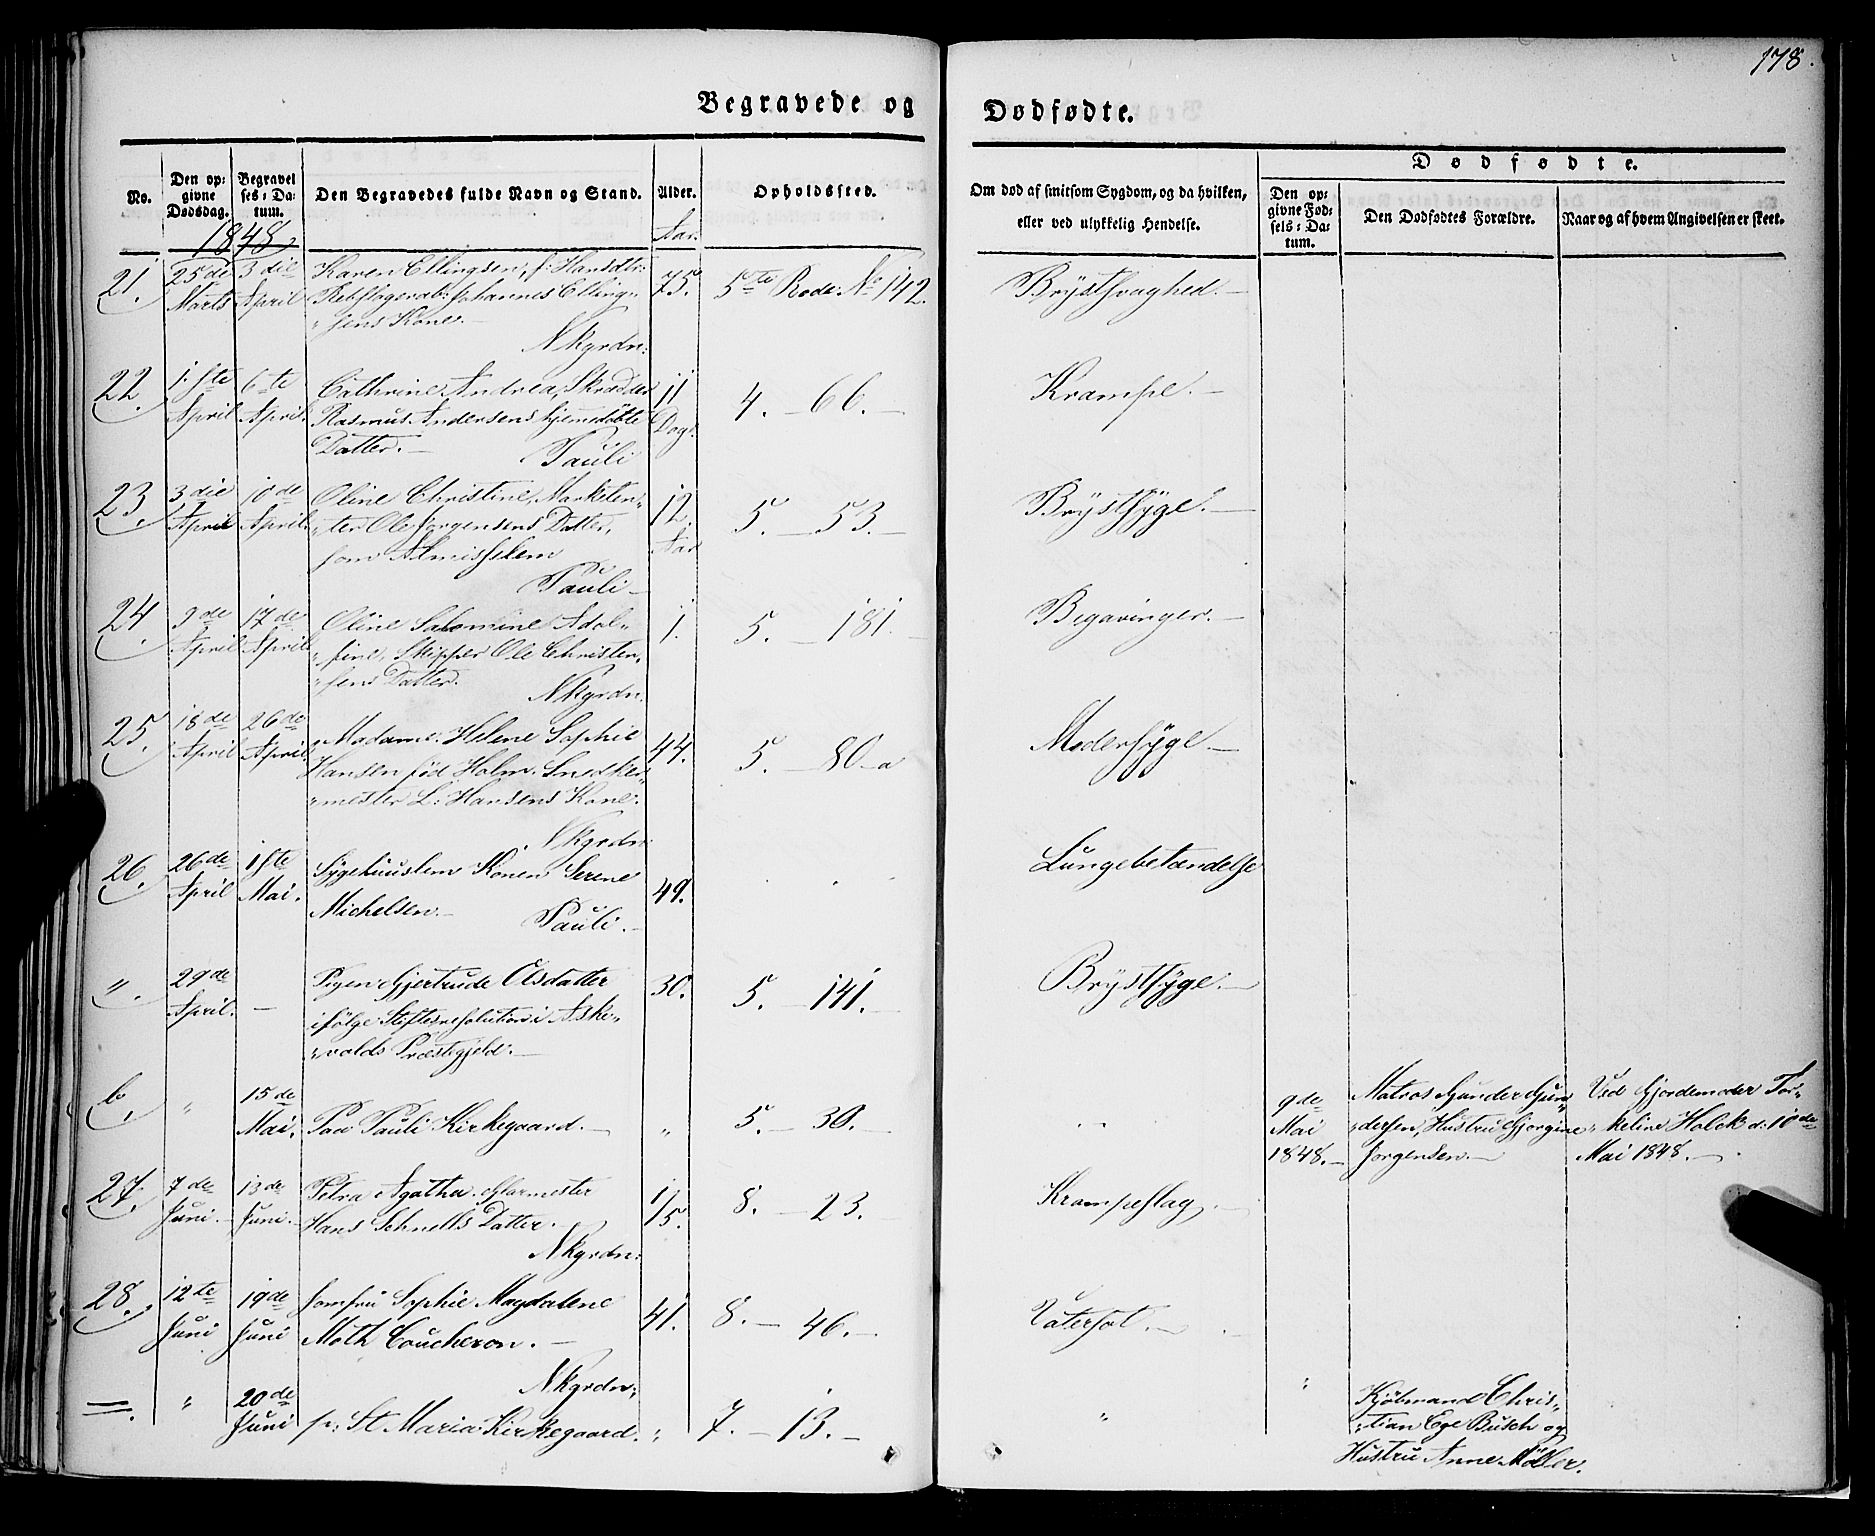 178.
Begravede og Dødfødte.
No.
Den opgivne Dødsdag.
Begravelses-Datum.
Den Begravedes fulde Navn og Stand.
Alder.
Opholdssted.
Om død af smitsom Sygdom, og da hvilken,
eller ved ulykkelig Hendelse.
Dødfødte.
Den opgivne Fødsels-Datum.
Den Dødfødtes Forældre.
Naar og af hvem Angivelsen er skeet.
1848
Aar.
21. 25de 3die Karen Ellingsen, f: Hansdtr: 75. 5te Rode No 142. Brystsvaghed.
Marts April Rebslagerarb: Johannes Elling-
sens Kone.
Nkgrdn:
22. 1ste 6te Cathrine Andrea, Skrædder 11 4. 66. Krampe.
April April Rasmus Andersens hjemedöbte Dage
Datter.
Pauli
23. 3die 10de Oline Christine, Marketen- 12. 5. 53. Brystsyge.
April April ter Ole Jorgensens Datter, Aar
som Almisslem
Pauli
24 9de 17de Oline Salomine Adol- 1. 5. 181. Begavinger.
April April fine, Skipper Ole Christen-
sens Datter.
Nkgrdn:
25. 18de 26de Madame Helene Sophie 44. 5. 80-a Modersyge
April April Hansen föd Holm. Snedker-
mester L: Hansens Kone.
Nkgrdn:
26. 26de 1ste Sygehuuslem Konen Serene 49. Lungebetændelse
April Mai. Michelsen.
Pauli.
". 29de Pigen Gjertrude Olsdatter 30. 5. 141. Brystsyge.
April. ifölge Stiftsresolution i Aske-
volds Præstegjeld.
b. " 15de Mai. Paa Pauli Kirkegaard. " 5. 30.
9de Mai 1848.
Matros Gunder Gun-
dersen, Hustru Gjorgine
Jorgensen.
Ved Gjordemoder Tor-
keline Holck d: 10de
Mai 1848.
27. 7de 13de Petra Agatha 1/15. 8. 23. Krampeslag
Juni. Juni. Hans Schnells Datter.
Nkgrdn:
28. 12te 19de Jomfru Sophie Magdalene 41. 8. 46. Vatersot.
Juni Juni Moth Coucheron.
Nkgrdn:
=. " 20de Juni p: St. Maria Kirkegaard. " 7. 13. " "
Kjöbmand Chris-
tian Ege Busch og
Hustru Anne Möller.